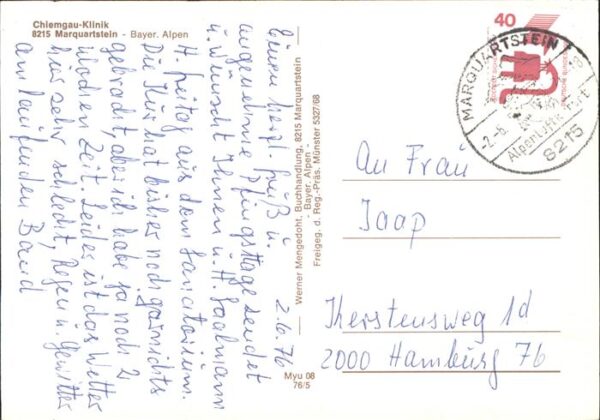 Chiemgau-Klinik
8215 Marquartstein - Bayer. Alpen
2.6.76
Einen herzl. Gruß u.
angenehme Pfingsttage sendet
u. wünscht Ihnen u. H. Saalmann
H. Freitag aus dem Sanatorium.
Die Kur hat bisher noch garnichts
gebracht, aber ich habe ja noch 2½
Wochen Zeit. Leider ist das Wetter
hier sehr schlecht, Regen u. Gewitter
am laufenden Band
Werner Mengedoht, Buchhandlung, 8215 Marquartstein
- Bayer. Alpen -
Freigeg. d. Reg.-Präs. Münster 5327/68
Myu 08
76/5
40
MARQUARTSTEIN
-2.-6.
8215
An Frau
Jaap
Kerstensweg 1d
2000 Hamburg 76